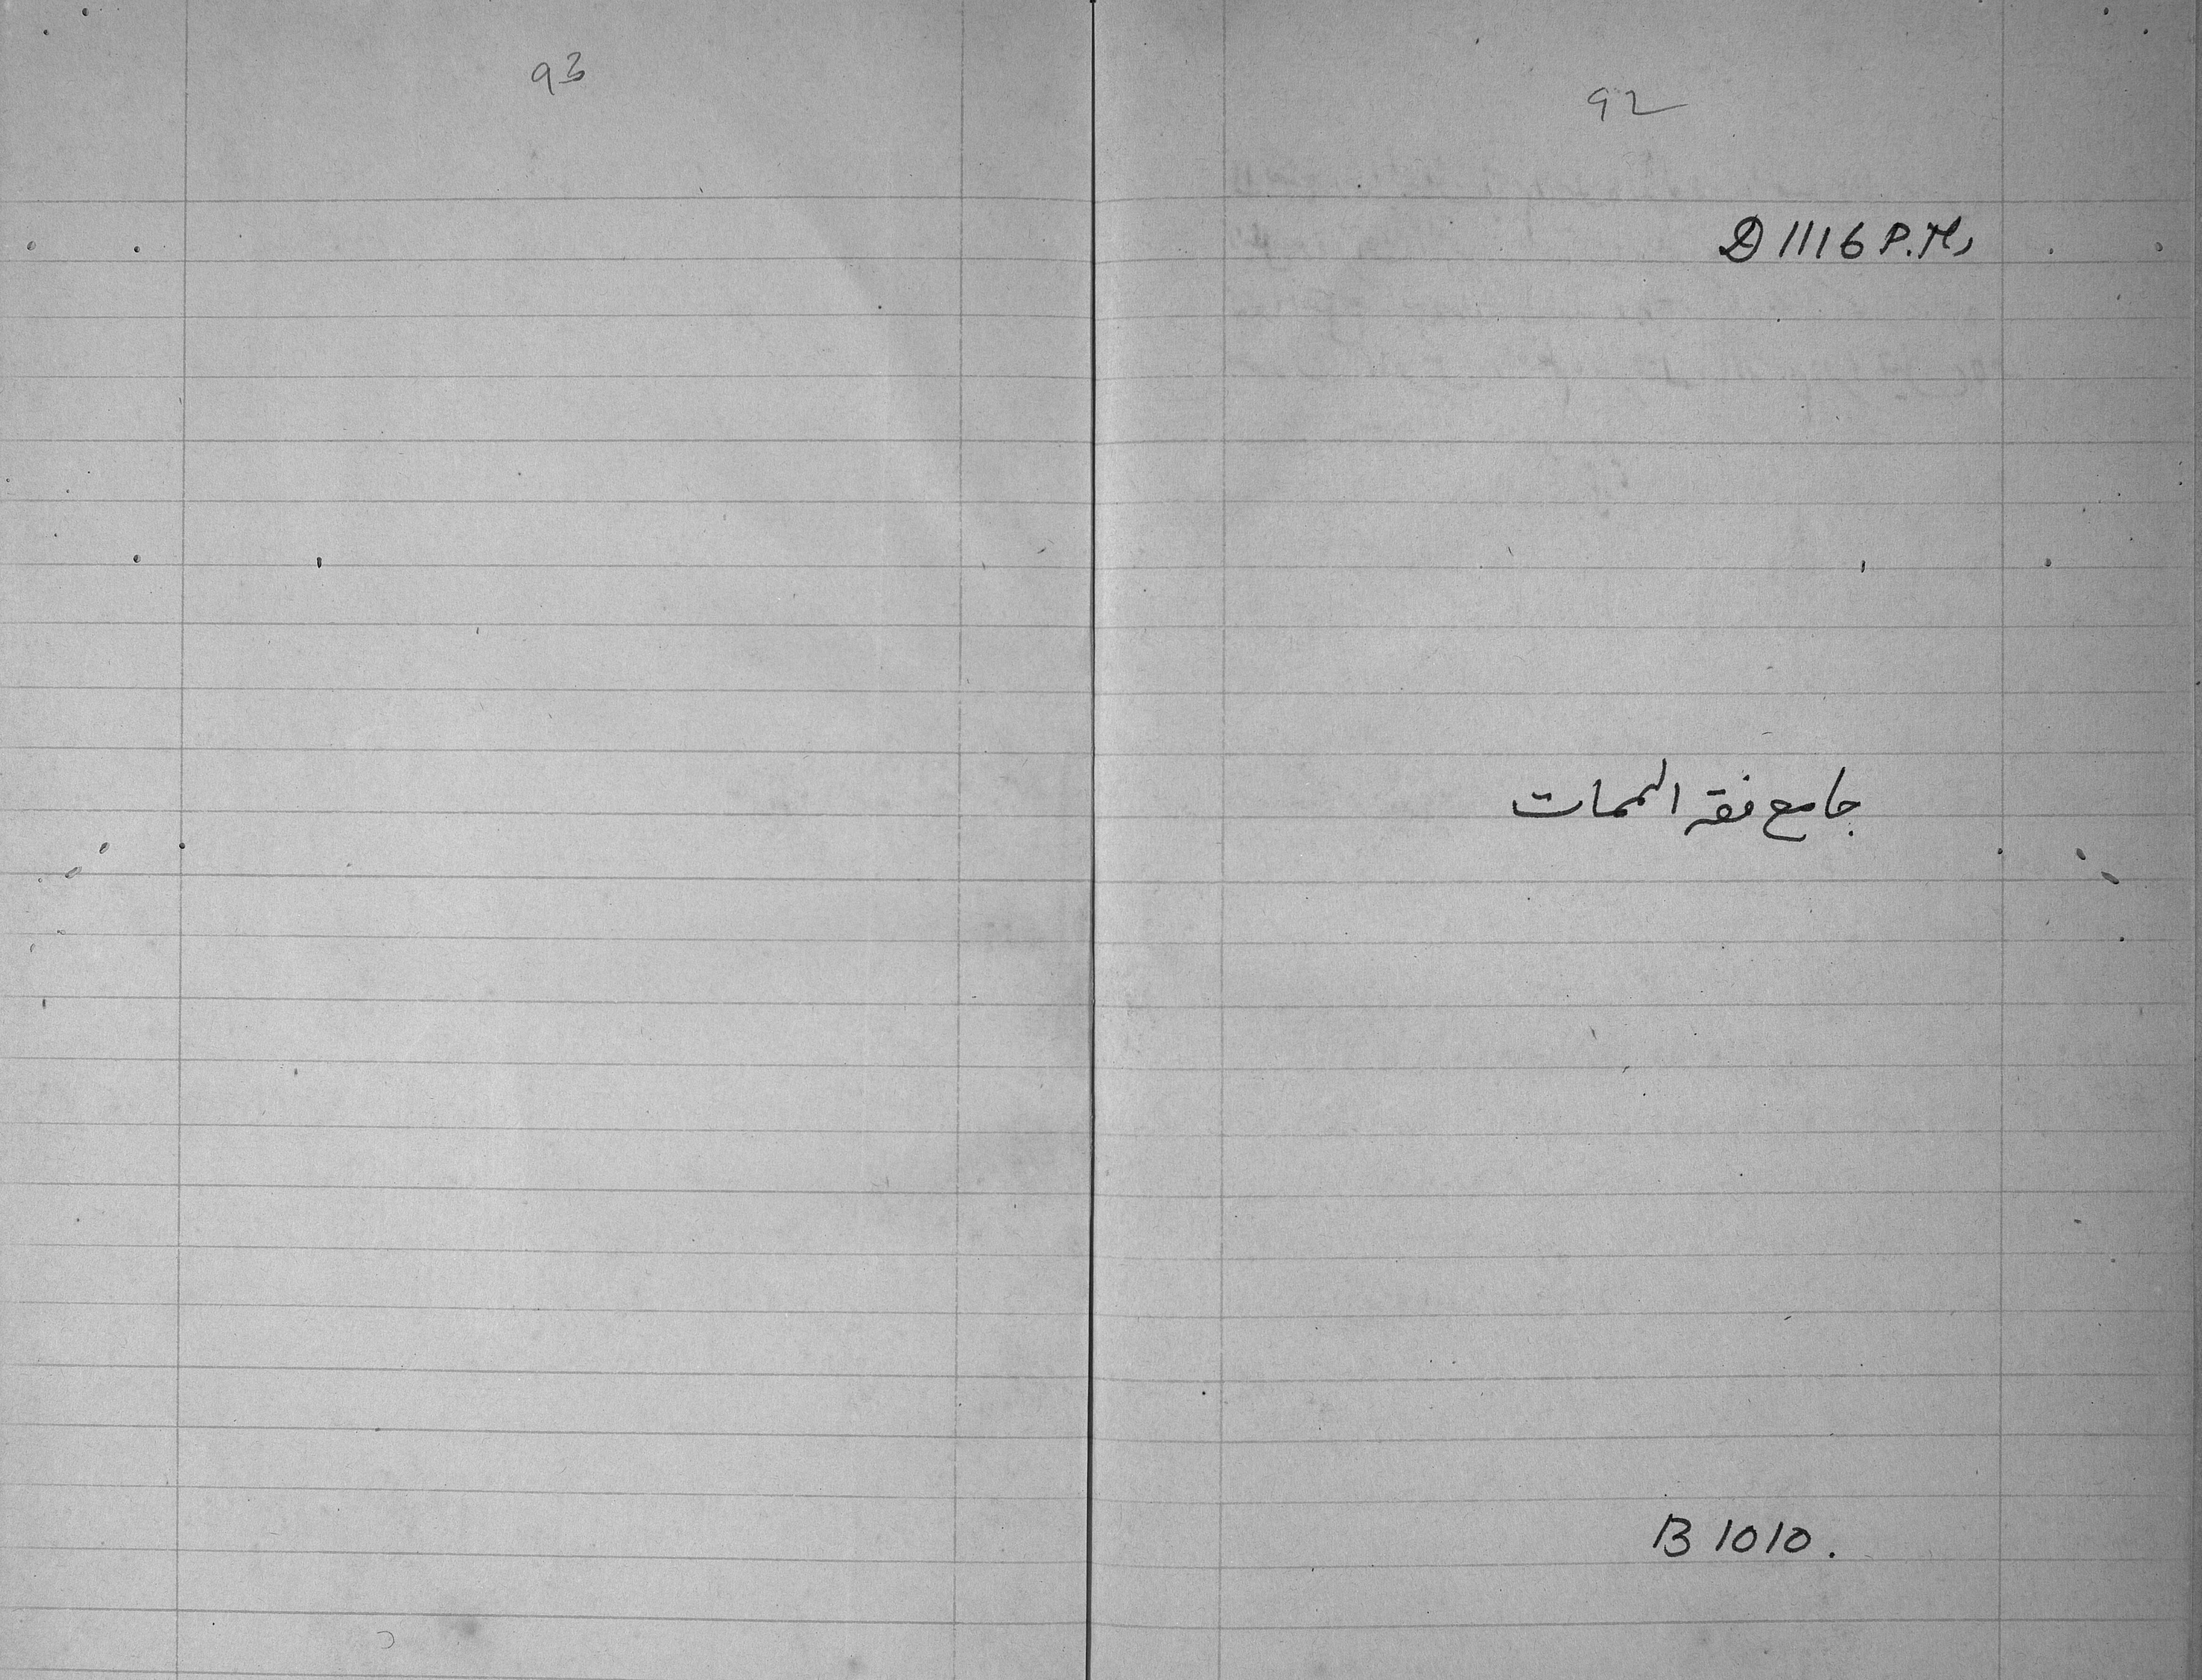 92
D 1116 P.Ms
جامع فقه الممات
B 1010.
93